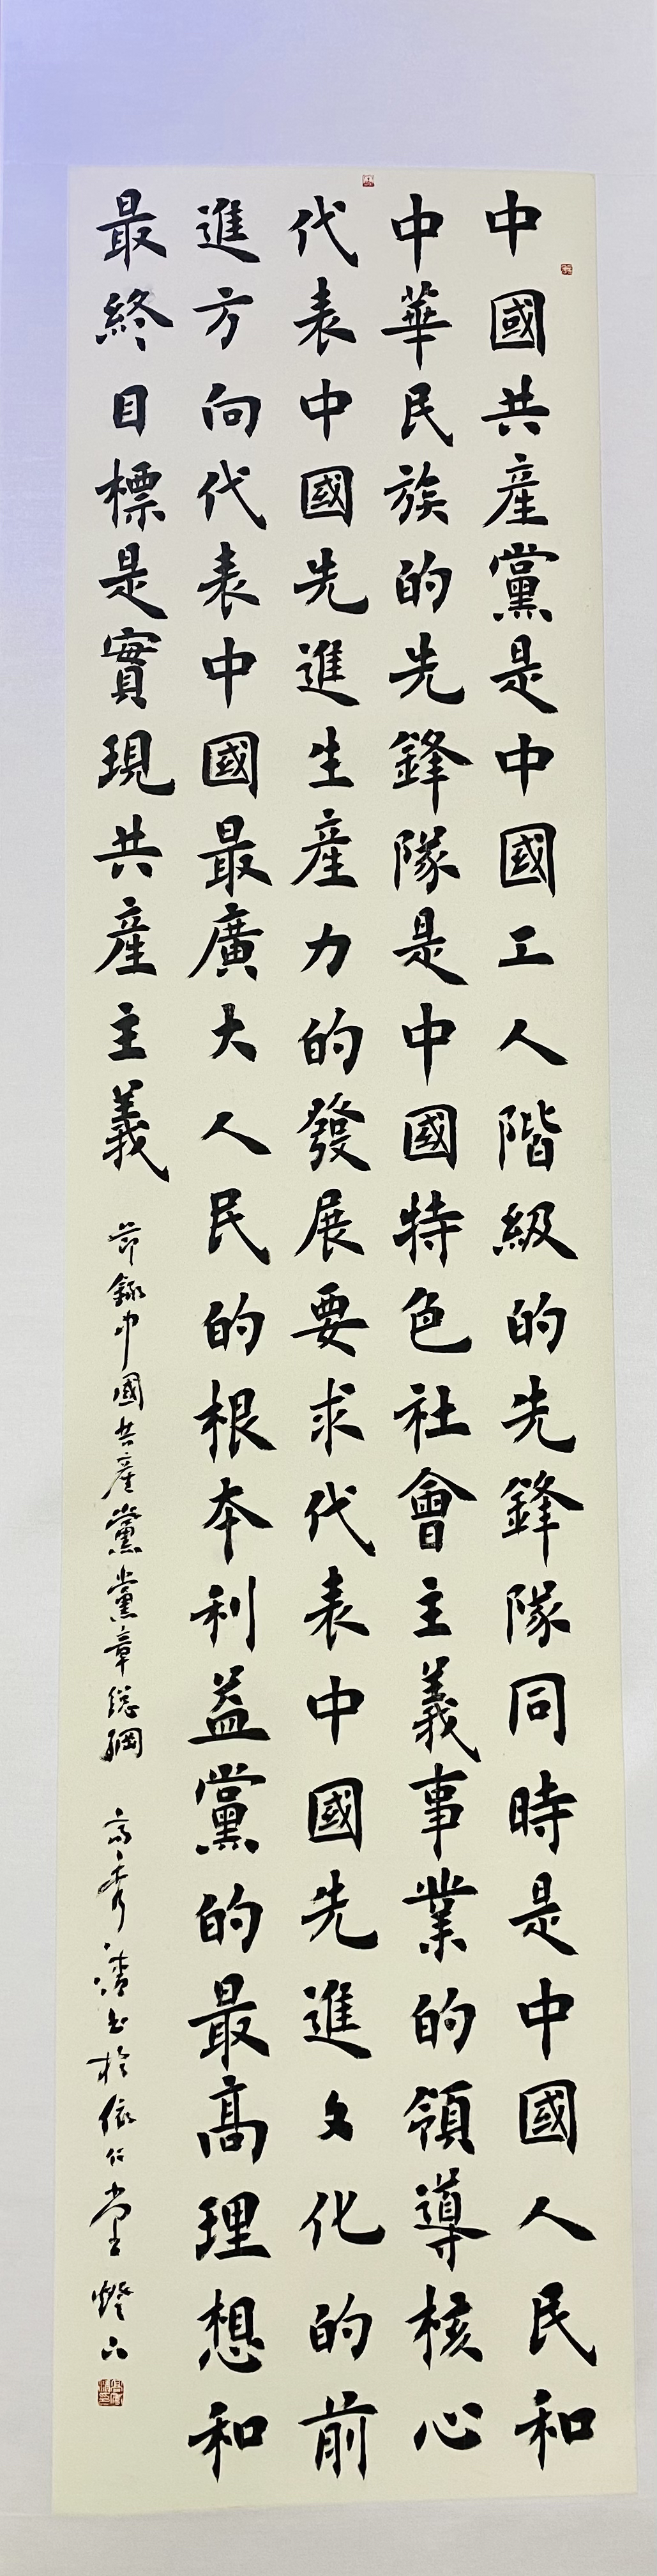 中國共產黨是中國工人階級的先鋒隊同時是中國人民和
中華民族的先鋒隊是中國特色社會主義事業的領導核心
代表中國先進生產力的發展要求代表中國先進文化的前
進方向代表中國最廣大人民的根本利益黨的最高理想和
最終目標是實現共產主義
節錄中國共產黨黨章總綱 高秀清書於依仁堂燈下